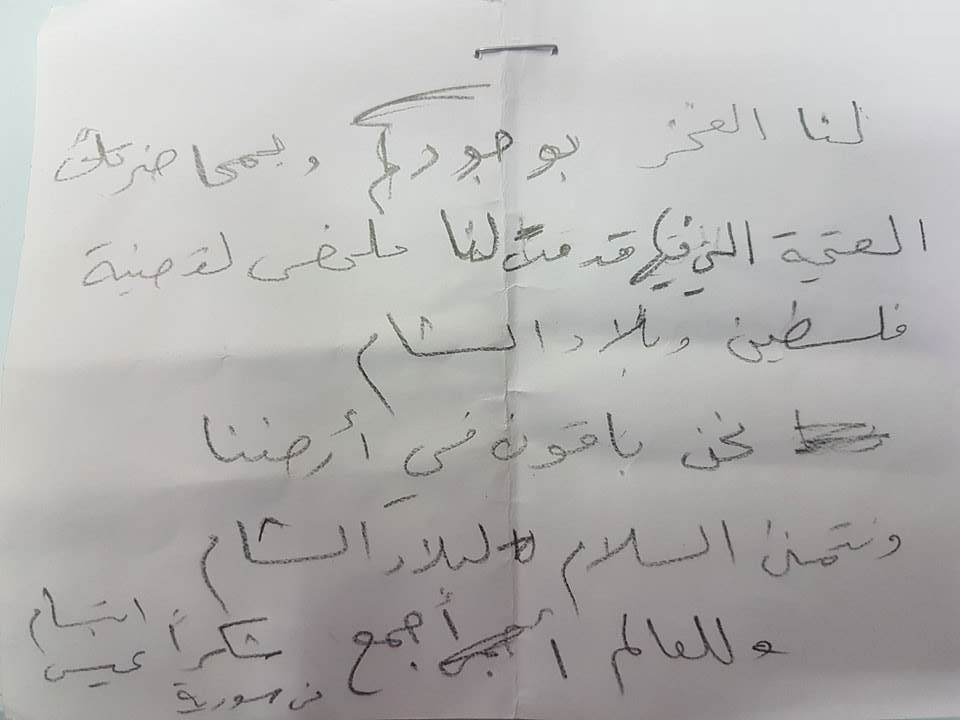 لنا الفخر بوجودكم وبمحاضرتك
القيمة التي قدمت لنا ملخص لقضية
فلسطين وبلاد الشام
نحن باقون في أرضنا
ونتمنى السلام لبلاد الشام
وللعالم أجمع شكراً ابتسام
عيسى
من سورية